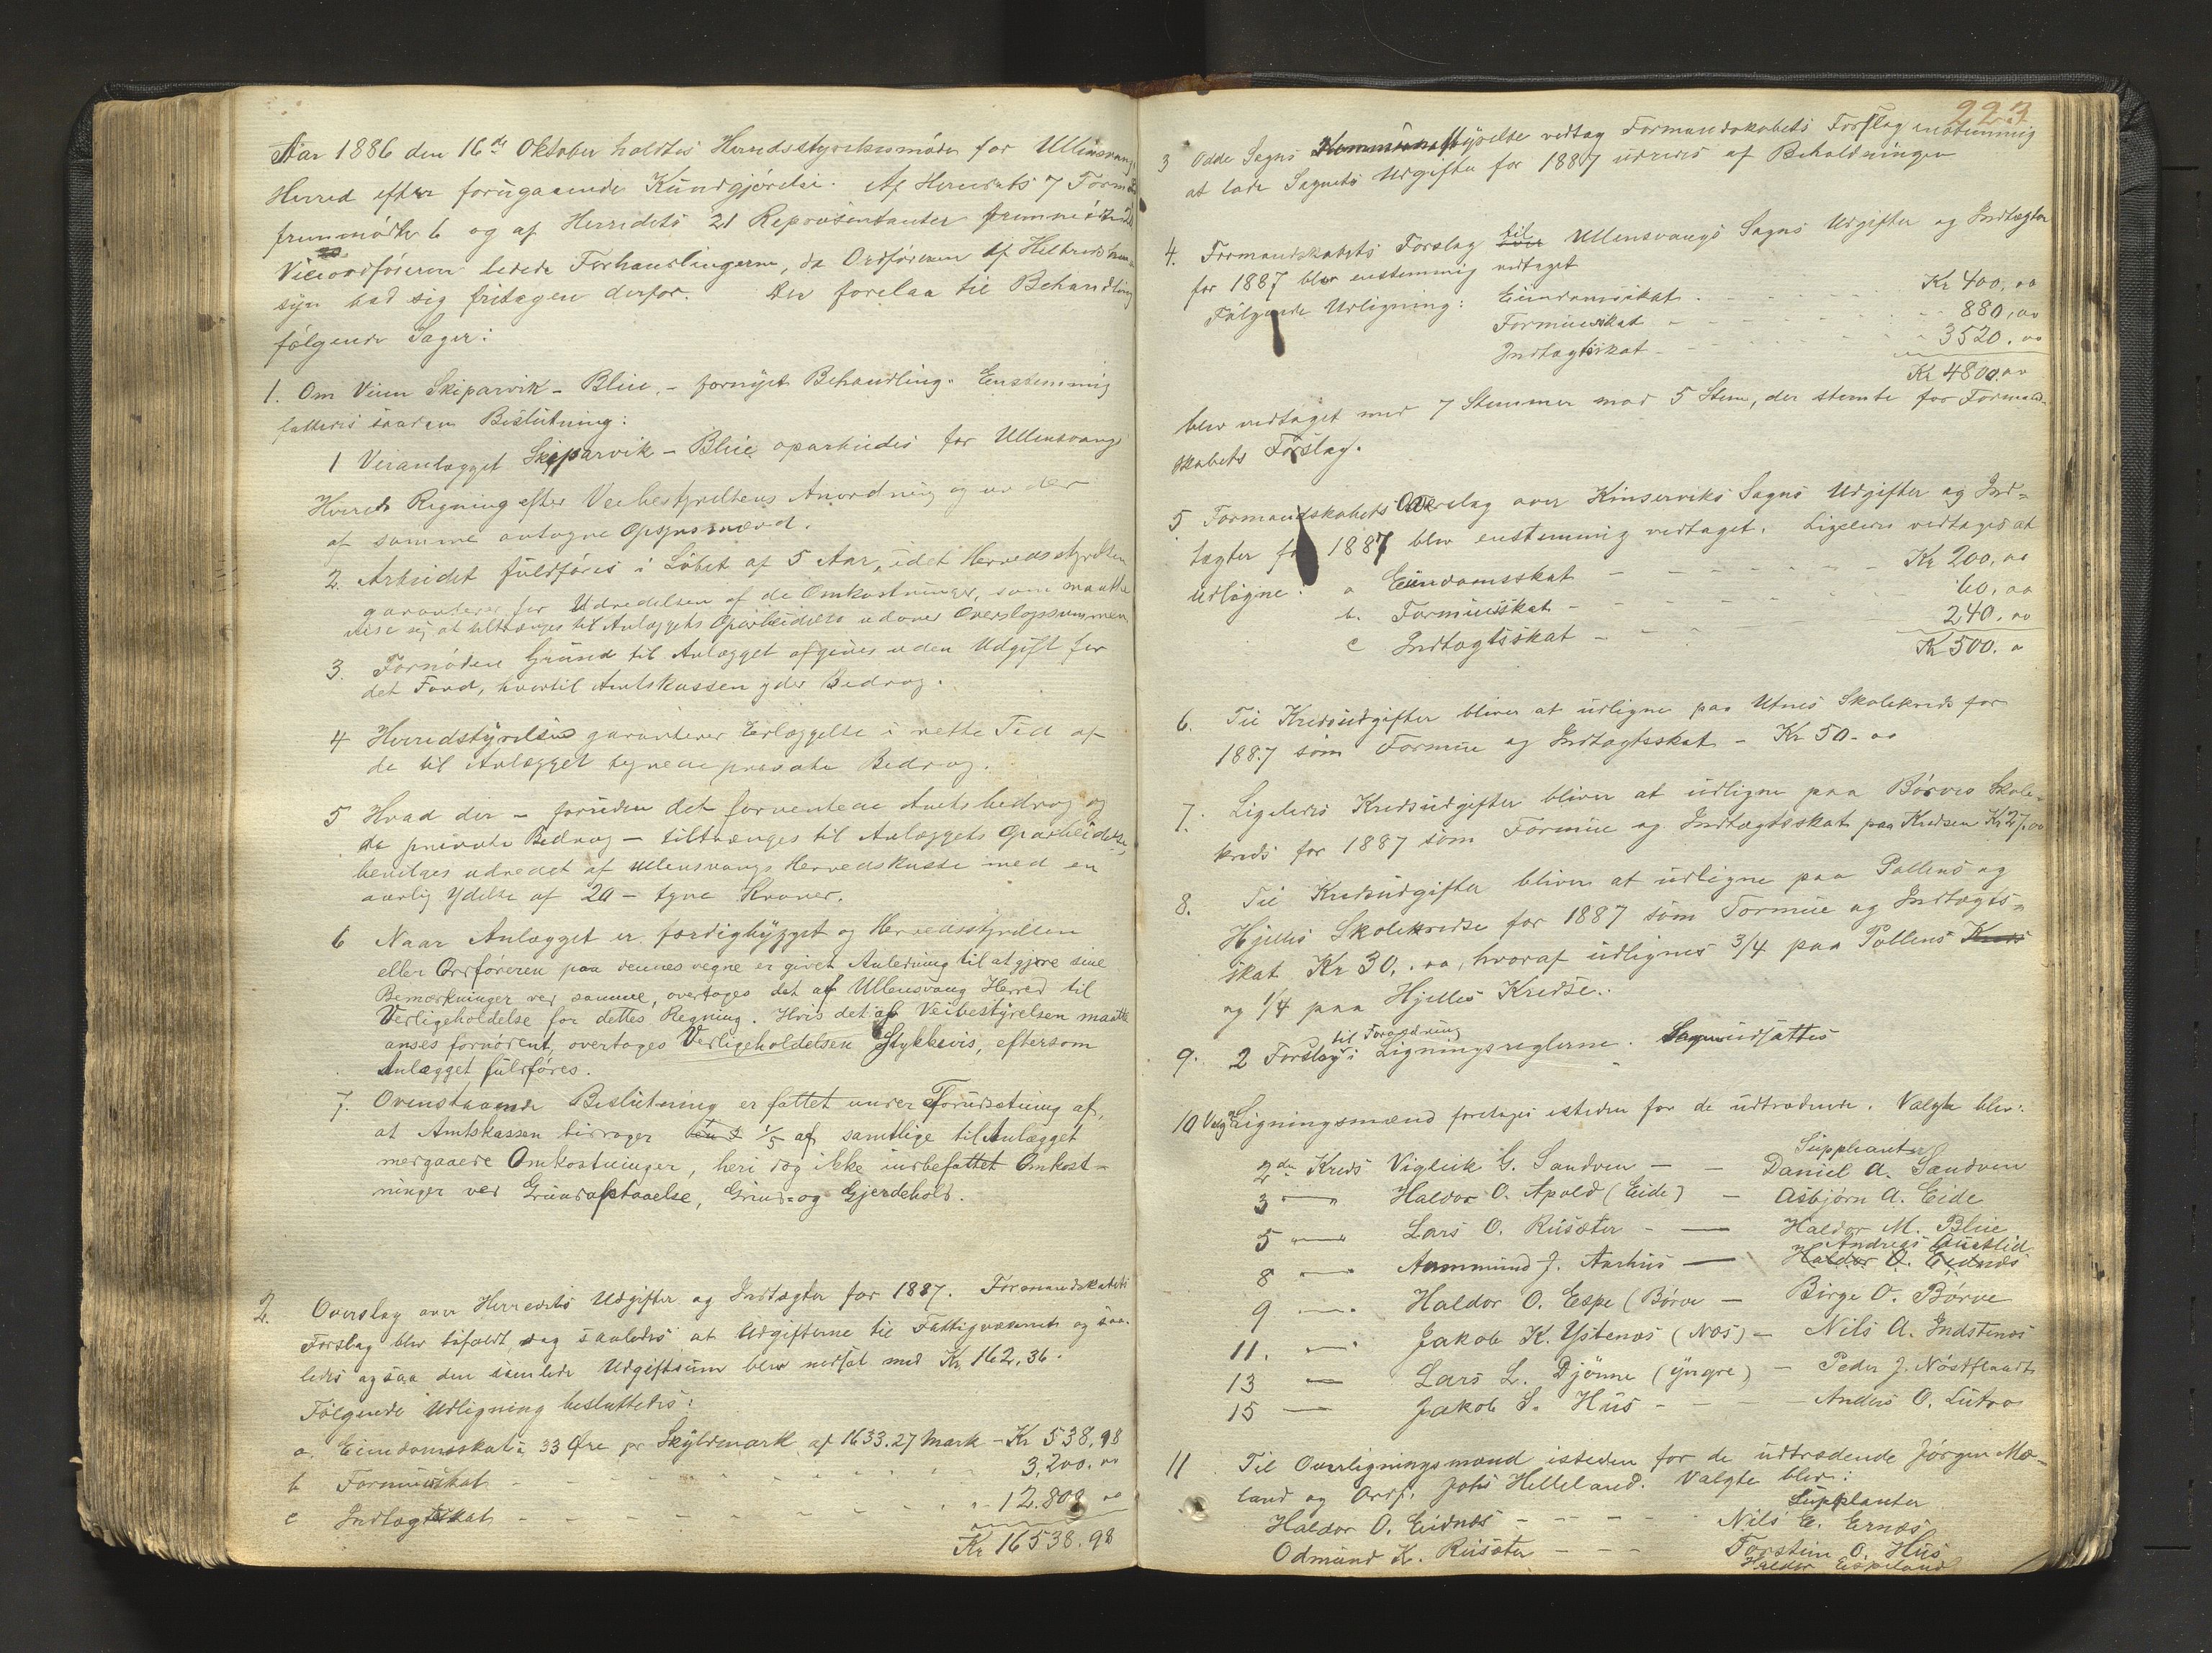 Aar 1886 den 16de Oktober holdtes Herredsstyrelsesmøde for Ullensvang
Herred efter forugaaende Kundgjørelse. Af Herredets 7 Formænd
fremmødte 6 og af Herredets 21 Repræsentanter fremmødte
Viceordføreren ledede Forhandlingerne, da Ordføreren af Helbredshen-
syn bad sig fritagen derfor. Der forelaa til Behandling
følgende Sager:
1. Om Veien Skiparvik - Blie, - fornyet Behandling. Enstemmig
fattedes saadan Beslutning:
1 Veianlægget Skiparvik - Blie oparbeides for Ullensvangs
Herreds Regning efter Veibestyrelsens Anordning og under
af samme antagne Opsynsmænd.
2. Arbeidet fuldføres i Løbet af 5 Aar, idet Herredsstyrelsen
garanterer for Udredelsen af de Omkostninger, som maatte
vise sig at tiltrænges til Anlæggets Oparbeidelse udover Overslagssummen
3. Fornøden Grund til Anlægget afgives uden Udgift for
det Fond, hvortil Amtskassen yder Bidrag.
4 Herredstyrelsen garanterer Erlæggelse i rette Tid af
de til Anlægget tegnede private Bidrag.
5 Hvad der - foruden det forventede Amtsbidrag og
de private Bidrag - tiltrænges til Anlæggets Oparbeidelse,
bevilges udredet af Ullensvangs Herredskasse med en
aarlig Ydelse af 20 - tyve Kroner.
6 Naar Anlægget er færdigbygget og Herredsstyrelsen
eller Ordføreren paa dennes vegne er givet Anledning til at gjøre sine
Bemærkninger ved samme, overtages det af Ullensvang Herred til
Vedligeholdelse for dettes Regning. Hvis det af Veibestyrelsen maatte
anses fornødent, overtages Vedligeholdelsen Stykkevis, eftersom
Anlægget fuldføres.
7. Ovenstaaende Beslutning er fattet under Forudsætning af,
at Amtskassen bidrager 1/5 af samtlige til Anlægget
medgaaede Omkostninger, heri dog ikke indbefattet Omkost-
ninger ved Grundafstaaelse, Grind- og Gjerdehold.
2. Overslag over Herredets Udgifter og Indtægter for 1887. Formandskabets
Forslag blev bifaldt, dog saaledes at Udgifterne til Fattigvæsenet og saa-
ledes ogsaa den samlede Udgiftsum blev nedsat med Kr. 162.36.
Følgende Udligning besluttedes:
a. Eiendomsskat à 33 Øre pr Skyldmark af 1633.27 Mark - Kr 538,98
b Formueskat - 3,200.00
c Indtægtsskat - 12.800 00
Kr 16538.98
223
3 Odde Sogns Kommunestyrelse vedtog Formandskabets Forslag enstemmig
at lade Sognets Udgifter for 1887 udredes af Beholdningen
4. Formandskabets Forslag til Ullensvangs Sogns Udgifter og Indtægter
for 1887 blev enstemmig vedtaget
Følgende Udligning: Eiendomsskat - Kr 400,00
Formueskat - 880,00
Indtægtsskat - 3520.00
Kr 4800.00
blev vedtaget med 7 Stemmer mod 5 Stem, der stemte for Formand-
skabets Forslag.
5 Formandskabets Overslag over Kinserviks Sogns Udgifter og Ind-
tægter for 1887 blev enstemmig vedtaget. Ligeledes vedtages at
udligne: a Eiendomsskat - Kr 200,00
b. Formueskat - 60,00
c Indtægtsskat - 240.00
Kr 500.0
6. Til Kredsudgifter bliver at udligne paa Utnes Skolekreds for
1887 som Formue og Indtægtsskat - Kr 50.00
7. Ligeledes Kredsudgifter bliver at udligne paa Børves Skole-
kreds for 1887 som Formue og Indtægtsskat paa Kredsen Kr 27.00
8. Til Kredsudgifter bliver at udligne paa Pollens og
Hjelles Skolekredse for 1887 som Formue og Indtægts-
skat Kr 30.00, hvoraf udlignes 3/4 paa Pollens Kreds
og 1/4 paa Hjelles Kredse.
9. 2 Forslag til Forandring i Ligningsreglerne. Sagen udsattes
10 Valg Ligningsmænd foretages istedenfor de udtrædende. Valgte blev:
Suppleanter
2den Kreds Vigleik G. Sandven - - Daniel A. Sandven
3 - " Haldor O. Apold (Eide) - Asbjørn A. Eide
5 " - " Lars O. Ruseter - - Haldor M. Blie
Andreas Austlid
8 - " Aammund J. Aarhus - Haldor O. Eidnes
9 - " Haldor O. Espe (Børve - Birge O. Børve
11. - " Jakob K. Ystenæs (Næs) - Nils A. Indstenæs
13 - Lars L. Djønne (yngre) - Peder J. Nøstflaadt
15 - Jakob S. Hus - - - Anders O. Lutro
11 Til Overligningsmænd istedenfor de udtrædende Jørgen Mæ-
land og Ordf. Johs Helleland. Valgte blev:
Suppleanter
Haldor O. Eidnes - - - - Nils E. Ernæs
Odmund K. Ruseter - - - Torstein O. Hus
Haldor Espeland